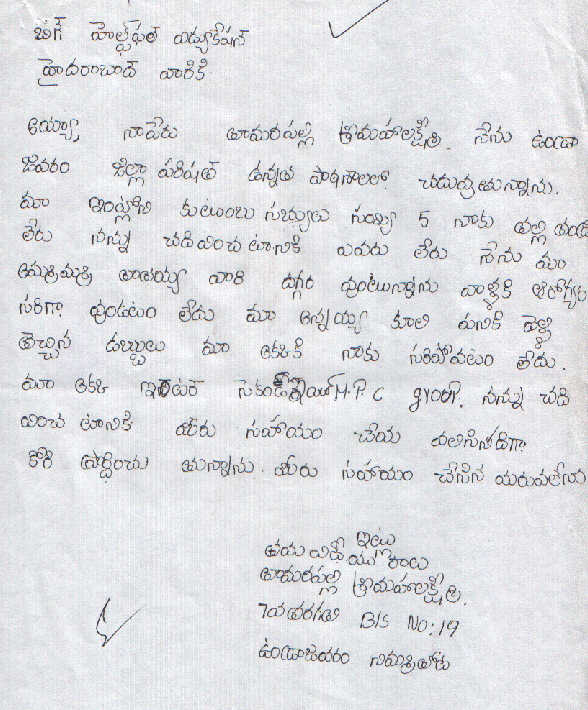 బిగ్ హెల్ప్‌ఫుల్ ఎడ్యుకేషన్
హైదరాబాద్ వారికి
అయ్యా, నాపేరు తామరపల్లి శ్రీమహాలక్ష్మి. నేను ఉండ్రా
జవరం జిల్లా పరిషత్ ఉన్నత పాఠశాలలో చదువుతున్నాను.
మా ఇంట్లోని కుటుంబ సభ్యులు సంఖ్య 5 నాకు తల్లి తండ్రి
లేరు నన్ను చదివించటానికి ఎవరు లేరు నేను మా
అమ్మమ్మ తాతయ్య వారి దగ్గర వుంటున్నాను వాళ్లకి ఆరోగ్యం
సరిగా వుండటం లేదు మా అన్నయ్య కూలి పనికి వెళ్ళి
తెచ్చిన డబ్బులు మా అక్కకి నాకు సరిపోవటం లేదు.
మా అక్క ఇంటర్ సెకండియర్ M.P.C group. నన్ను చది
వించటానికి మీరు సహాయం చేయ వలసినదిగా
కోరి ప్రార్ధించు చున్నాను. మీరు సహాయం చేసిన మరువలేను
ఇట్లు
తమ విదేయురాలు
తామరపల్లి శ్రీమహాలక్ష్మి.
7వతరగతి B/S No:19
ఉండ్రాజవరం